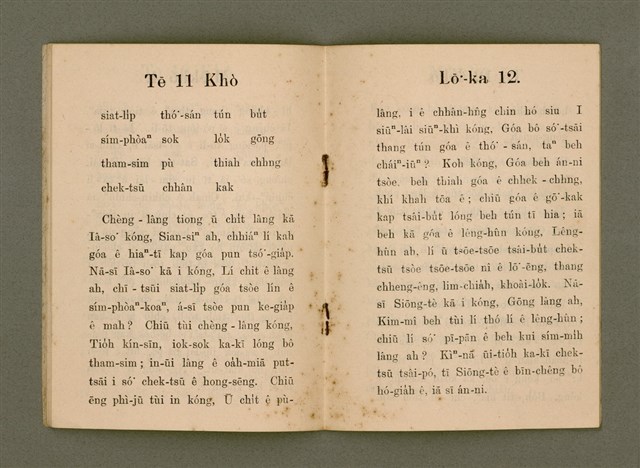 Tē 11 Khò
siat-li̍p thó͘-sán tún bu̍t
sím-phòaⁿ sok lo̍k gōng
tham-sim pù thiah chhng
chek-tsū chhân kak
Chèng-lâng tiong ū chi̍t lâng kā
Iâ-so͘ kóng, Sian-siⁿ ah, chhiáⁿ lí kah
góa ê hiaⁿ-tī kap góa pun tsó͘-gia̍p.
Nā-sī Iâ-so͘ kā i kóng, Lí chit ê lâng
ah, chī-tsūi siat-li̍p góa tsòe lín ê
sím-phòaⁿ-koaⁿ, á-sī tsòe pun ke-gia̍p
ê mah? Chiū tùi chèng-lâng kóng,
Tio̍h kín-sīn, iok-sok ka-kī lóng bô
tham-sim; in-ūi lâng ê oa̍h-miā put-
tsāi i só͘ chek-tsū ê hong-sēng. Chiū
ēng phì-jū tùi in kóng, Ū chi̍t ê pù-
Lō͘-ka 12.
lâng, i ê chhân-hn̂g chin hó siu I
siūⁿ-lâi siūⁿ-khì kóng, Góa bô só͘-tsāi
thang tún góa ê thó͘-sán, taⁿ beh
cháiⁿ-iūⁿ? Koh kóng, Góa beh án-ni
tsòe. beh thiah góa ê chhek-chhng,
khí khah tōa ê; chiū góa ê gō͘-kak
kap tsâi-bu̍t lóng beh tún tī hia; iā
beh kā góa ê lêng-hûn kóng, Lêng-
hûn ah, lí ū tsōe-tsōe tsâi-bu̍t chek-
tsū tsòe tsōe-tsōe nî ê lō͘-ēng, thang
chheng-êng, lim-chia̍h, khoài-lo̍k. Nā-
sī Siōng-tè kā i kóng, Gōng lâng ah,
Kim-mî beh tùi lí thó lí ê lêng-hûn;
chiū lí só͘ pī-pān ê beh kui sím-mi̍h
lâng ah? Kìⁿ-nā ūi-tio̍h ka-kī chek-
tsū tsâi-pó, tī Siōng-tè ê bīn-chêng bô
hó-gia̍h ê, iā sī án-ni.